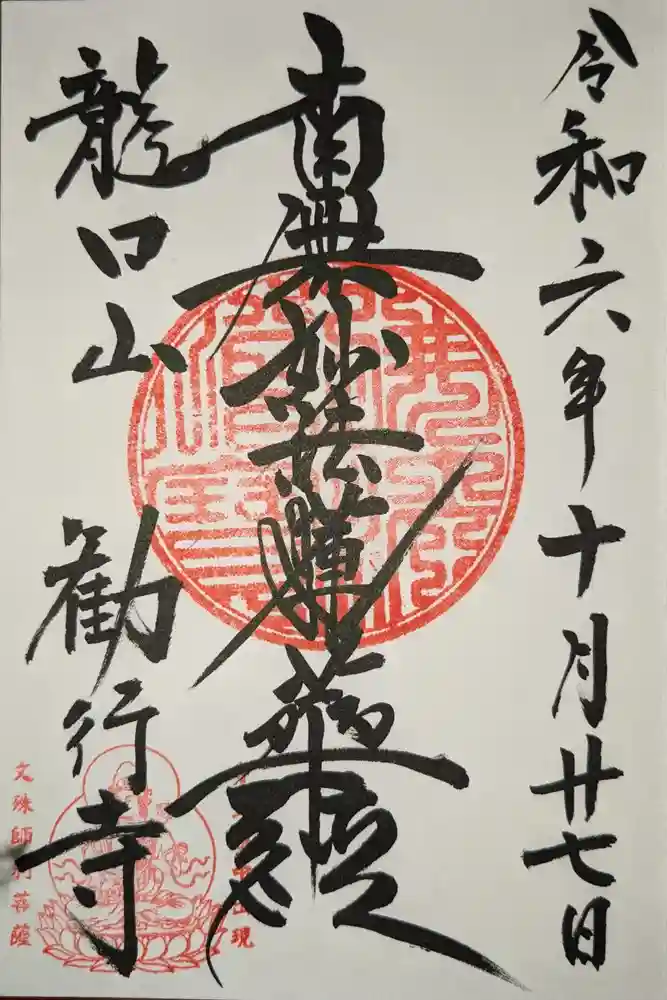 令和六年十月廿七日
南無妙法蓮華経
龍口山
勧行寺
文殊師利菩薩